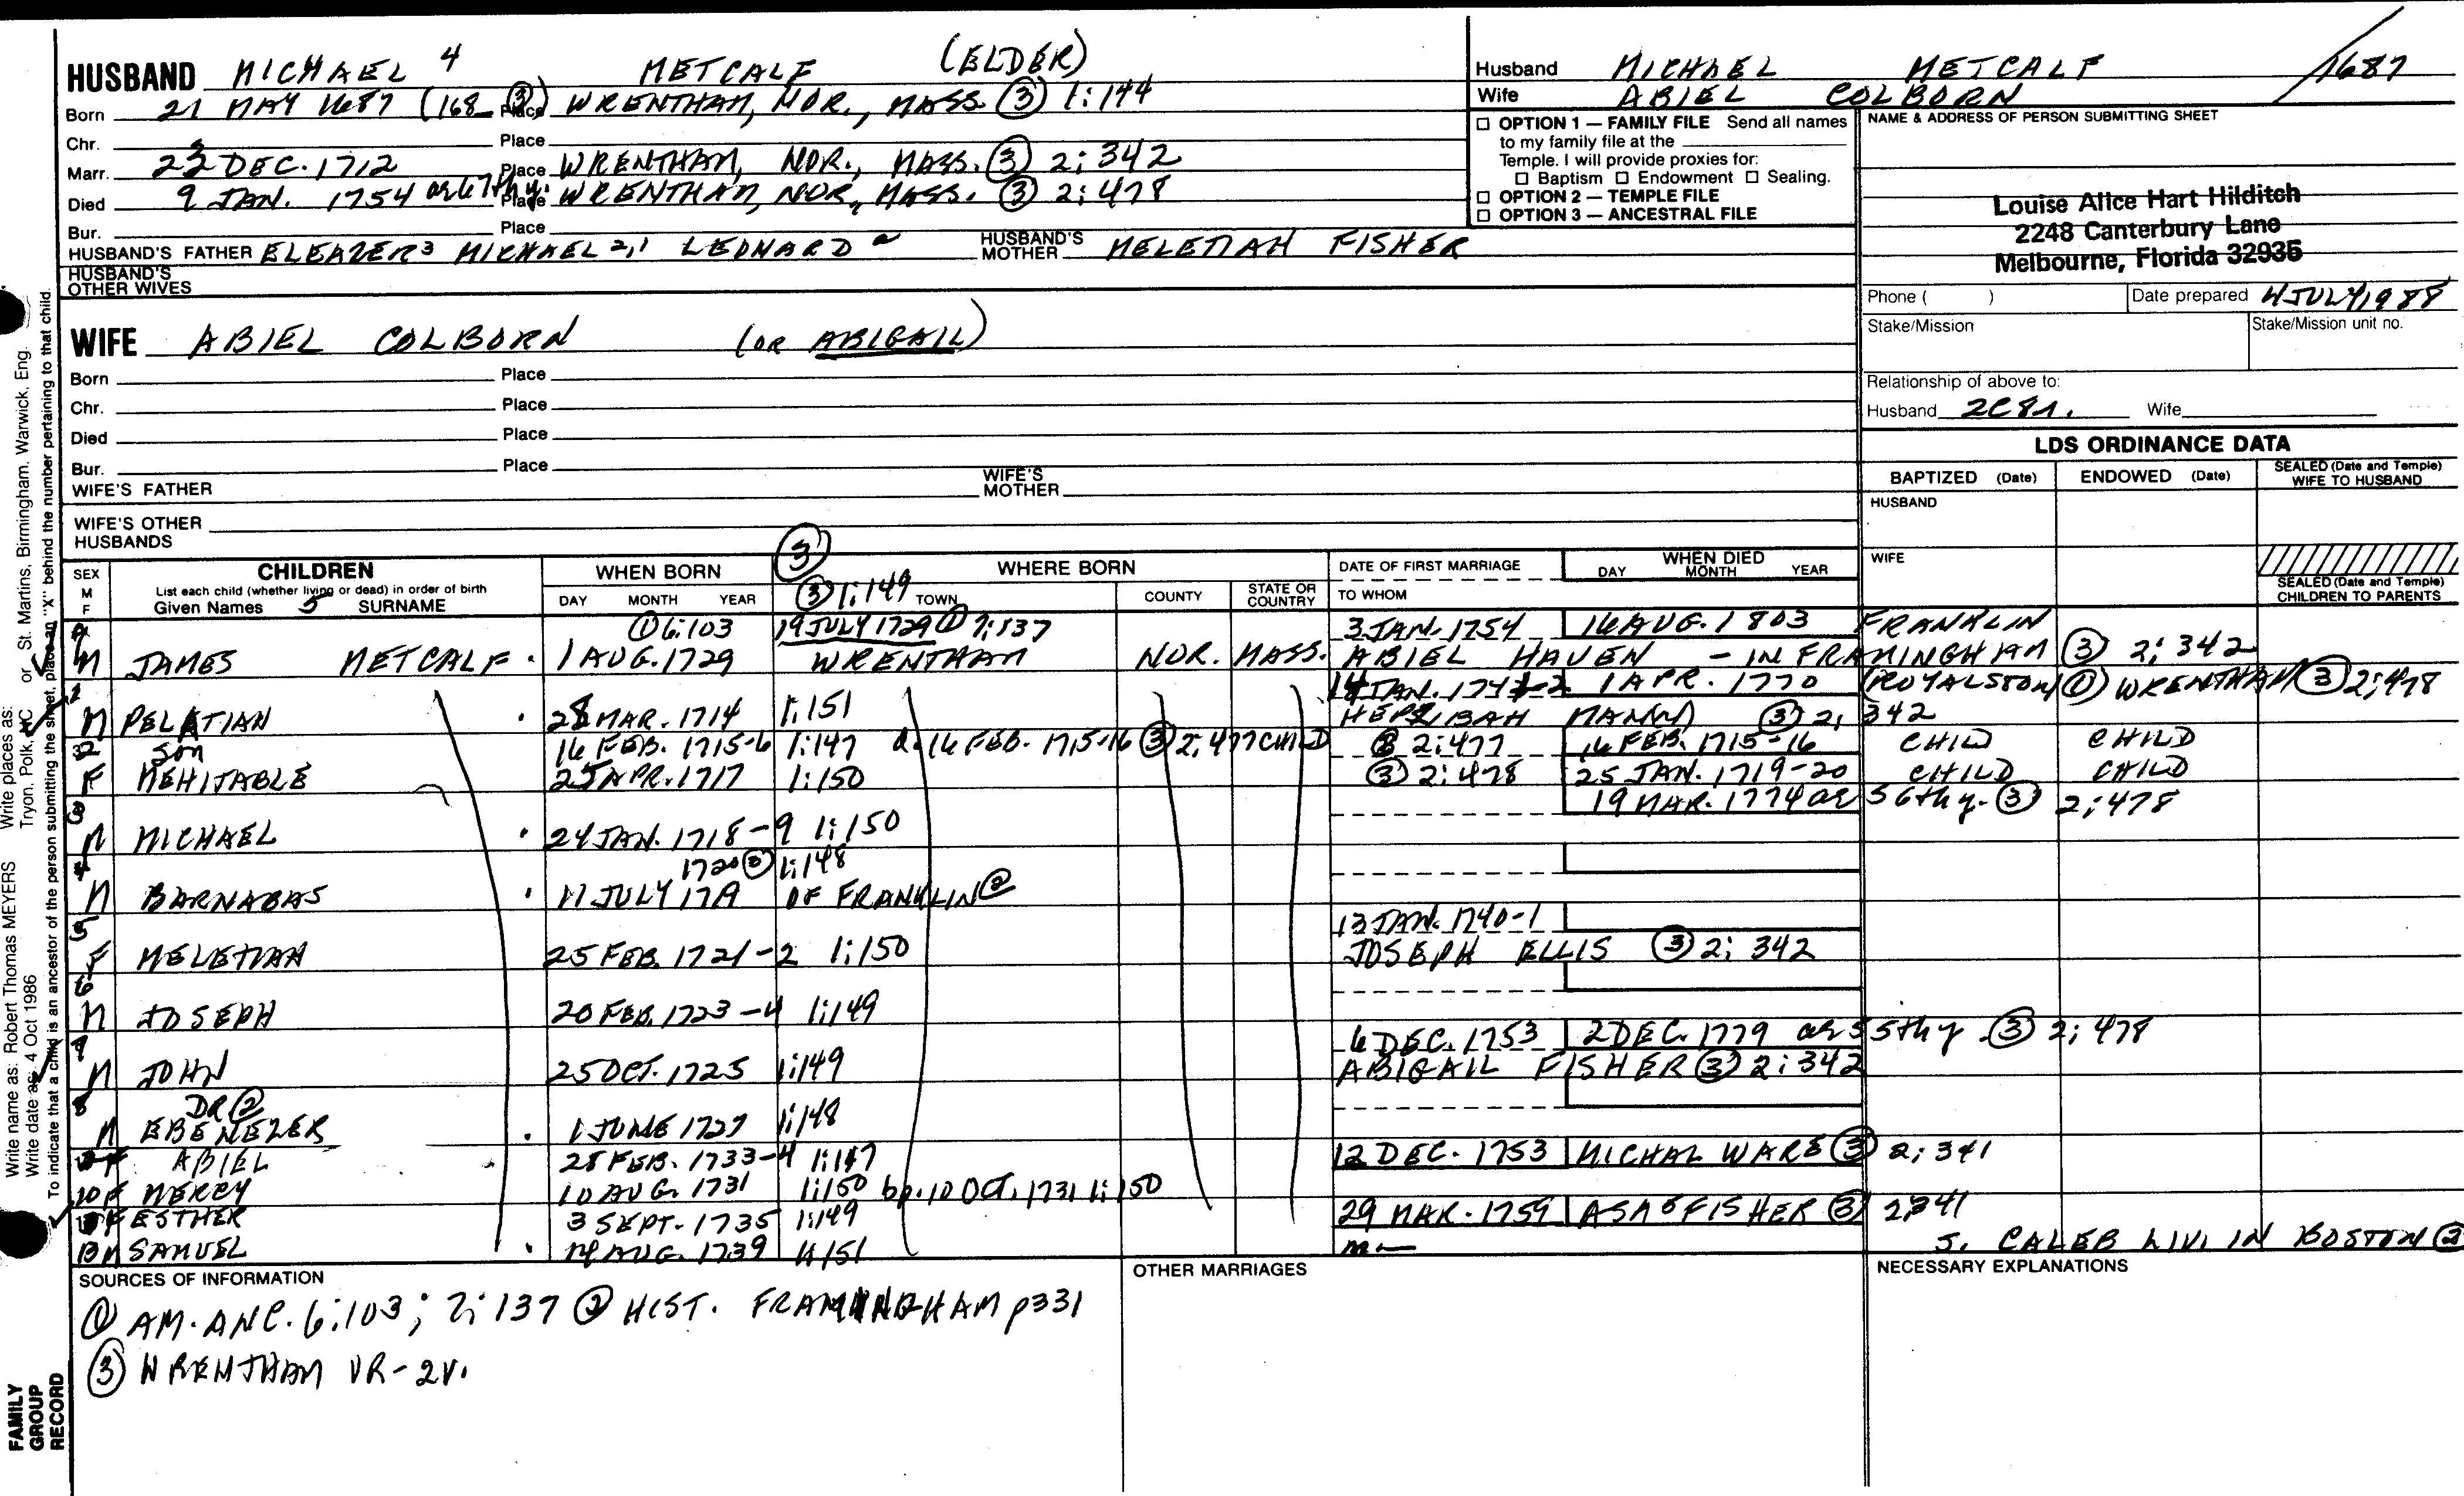 HUSBAND MICHAEL 4 METCALF (ELDER)
Born 21 MAY 1687 (168 ③) Place WRENTHAM, NOR., MASS. ③ 1:144
Chr. Place
Marr. DEC. 1712 Place WRENTHAM, NOR., MASS. ③ 2:342
Died 9 JAN. 1754 ae 67th y. Place WRENTHAM, NOR., MASS. ③ 2:478
Bur. Place
HUSBAND'S FATHER ELEAZER3 MICHAEL 2,1 LEONARD a HUSBAND'S MOTHER MELETIAH FISHER
HUSBAND'S OTHER WIVES
WIFE ABIEL COLBORN (OR ABIGAIL)
Born Place
Chr. Place
Died Place
Bur. Place
WIFE'S FATHER WIFE'S MOTHER
WIFE'S OTHER HUSBANDS
Husband MICHAEL METCALF /1687
Wife ABIEL COLBORN
☐ OPTION 1 — FAMILY FILE Send all names
to my family file at the
Temple. I will provide proxies for:
☐ Baptism ☐ Endowment ☐ Sealing.
☐ OPTION 2 — TEMPLE FILE
☐ OPTION 3 — ANCESTRAL FILE
NAME & ADDRESS OF PERSON SUBMITTING SHEET
Louise Alice Hart Hilditch
2248 Canterbury Lane
Melbourne, Florida 32935
Phone ( ) Date prepared 4 JULY 1988
Stake/Mission Stake/Mission unit no.
Relationship of above to:
Husband 2C8R. Wife
LDS ORDINANCE DATA
BAPTIZED (Date) ENDOWED (Date) SEALED (Date and Temple) WIFE TO HUSBAND
HUSBAND
WIFE
SEALED (Date and Temple) CHILDREN TO PARENTS
③
SEX M F CHILDREN WHEN BORN WHERE BORN DATE OF FIRST MARRIAGE WHEN DIED
List each child (whether living or dead) in order of birth DAY MONTH YEAR ③ 1:149 TOWN COUNTY STATE OR COUNTRY TO WHOM DAY MONTH YEAR
Given Names 5 SURNAME
9 ① 6:103 19 JULY 1729 ① 7:137 3 JAN. 1754 16 AUG. 1803 FRANKLIN
M JAMES METCALF 1 AUG. 1729 WRENTHAM NOR. MASS. ABIEL HAVEN - IN FRAMINGHAM ③ 2:342
1 14 JAN. 1741-2 1 APR. 1770 (ROYALSTON) ① WRENTHAM ③ 2:478
M PELATIAN 28 MAR. 1714 1:151 HEPZIBAH MANN ③ 2:342
2 SON 16 FEB. 1715-6 1:147 d. 16 FEB. 1715-16 ③ 2:477 CHILD ③ 2:477 16 FEB. 1715-16 CHILD CHILD
F MEHITABLE 25 APR. 1717 1:150 ③ 2:478 25 JAN. 1719-20 CHILD CHILD
3 19 MAR. 1774 ae 56th y. ③ 2:478
M MICHAEL 24 JAN. 1718-9 1:150
4 1720 ③ 1:148
M BARNABAS 11 JULY 1719 OF FRANKLIN ②
5 13 JAN. 1740-1
F MELETIAH 25 FEB. 1721-2 1:150 JOSEPH ELLIS ③ 2:342
6
M JOSEPH 20 FEB. 1723-4 1:149
6 DEC. 1753 2 DEC. 1779 ae 55th y. ③ 2:478
M JOHN 25 OCT. 1725 1:149 ABIGAIL FISHER ③ 2:342
8 DR ②
M EBENEZER 1 JUNE 1727 1:148
F ABIEL 28 FEB. 1733-4 1:147 12 DEC. 1753 MICHAL WARE ③ 2:341
10 F MERCY 10 AUG. 1731 1:150 bp. 10 OCT. 1731 1:150
F ESTHER 3 SEPT. 1735 1:149 29 MAR. 1759 ASA FISHER ③ 2:341
13 M SAMUEL 14 AUG. 1739 1:151 m— S. CALEB LIV. IN BOSTON ②
SOURCES OF INFORMATION
① AM. ANC. 6:103; 7:137 ② HIST. FRAMINGHAM p331
③ WRENTHAM VR-2V.
OTHER MARRIAGES
NECESSARY EXPLANATIONS
Write places as: Tryon, Polk, NC or St. Martins, Birmingham, Warwick, Eng.
Write name as: Robert Thomas MEYERS
Write date as: 4 Oct 1986
To indicate that a child is an ancestor of the person submitting the sheet, place an "X" behind the number pertaining to that child.
FAMILY GROUP RECORD